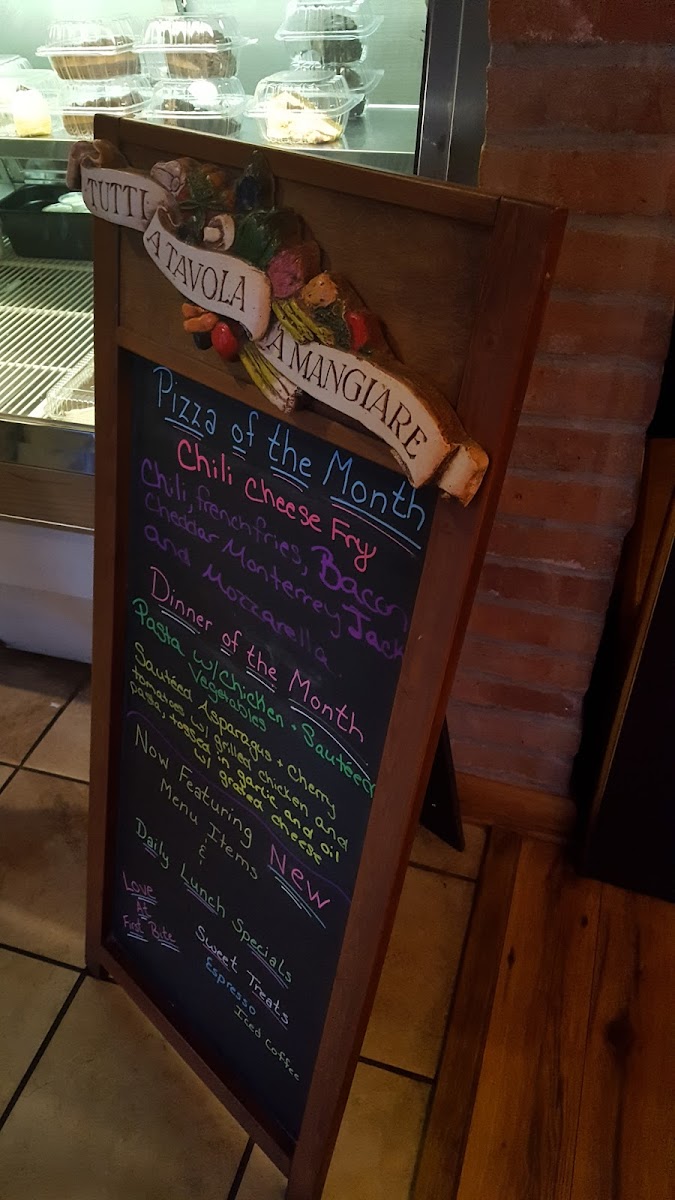 TUTTI
A TAVOLA
A MANGIARE
Pizza of the Month
Chili Cheese Fry
Chili, french fries, Bacon
Cheddar Monterrey Jack
and Mozzarella
Dinner of the Month
Pasta w/ Chicken + Sautéed
Vegetables
Sautéed Asparagus + Cherry
tomatoes w/ grilled chicken and
pasta, tossed in garlic and oil
w/ grated cheese
Now Featuring NEW
Menu Items
&
Daily Lunch Specials
Love
At
First Bite
Sweet Treats
Espresso
Iced Coffee